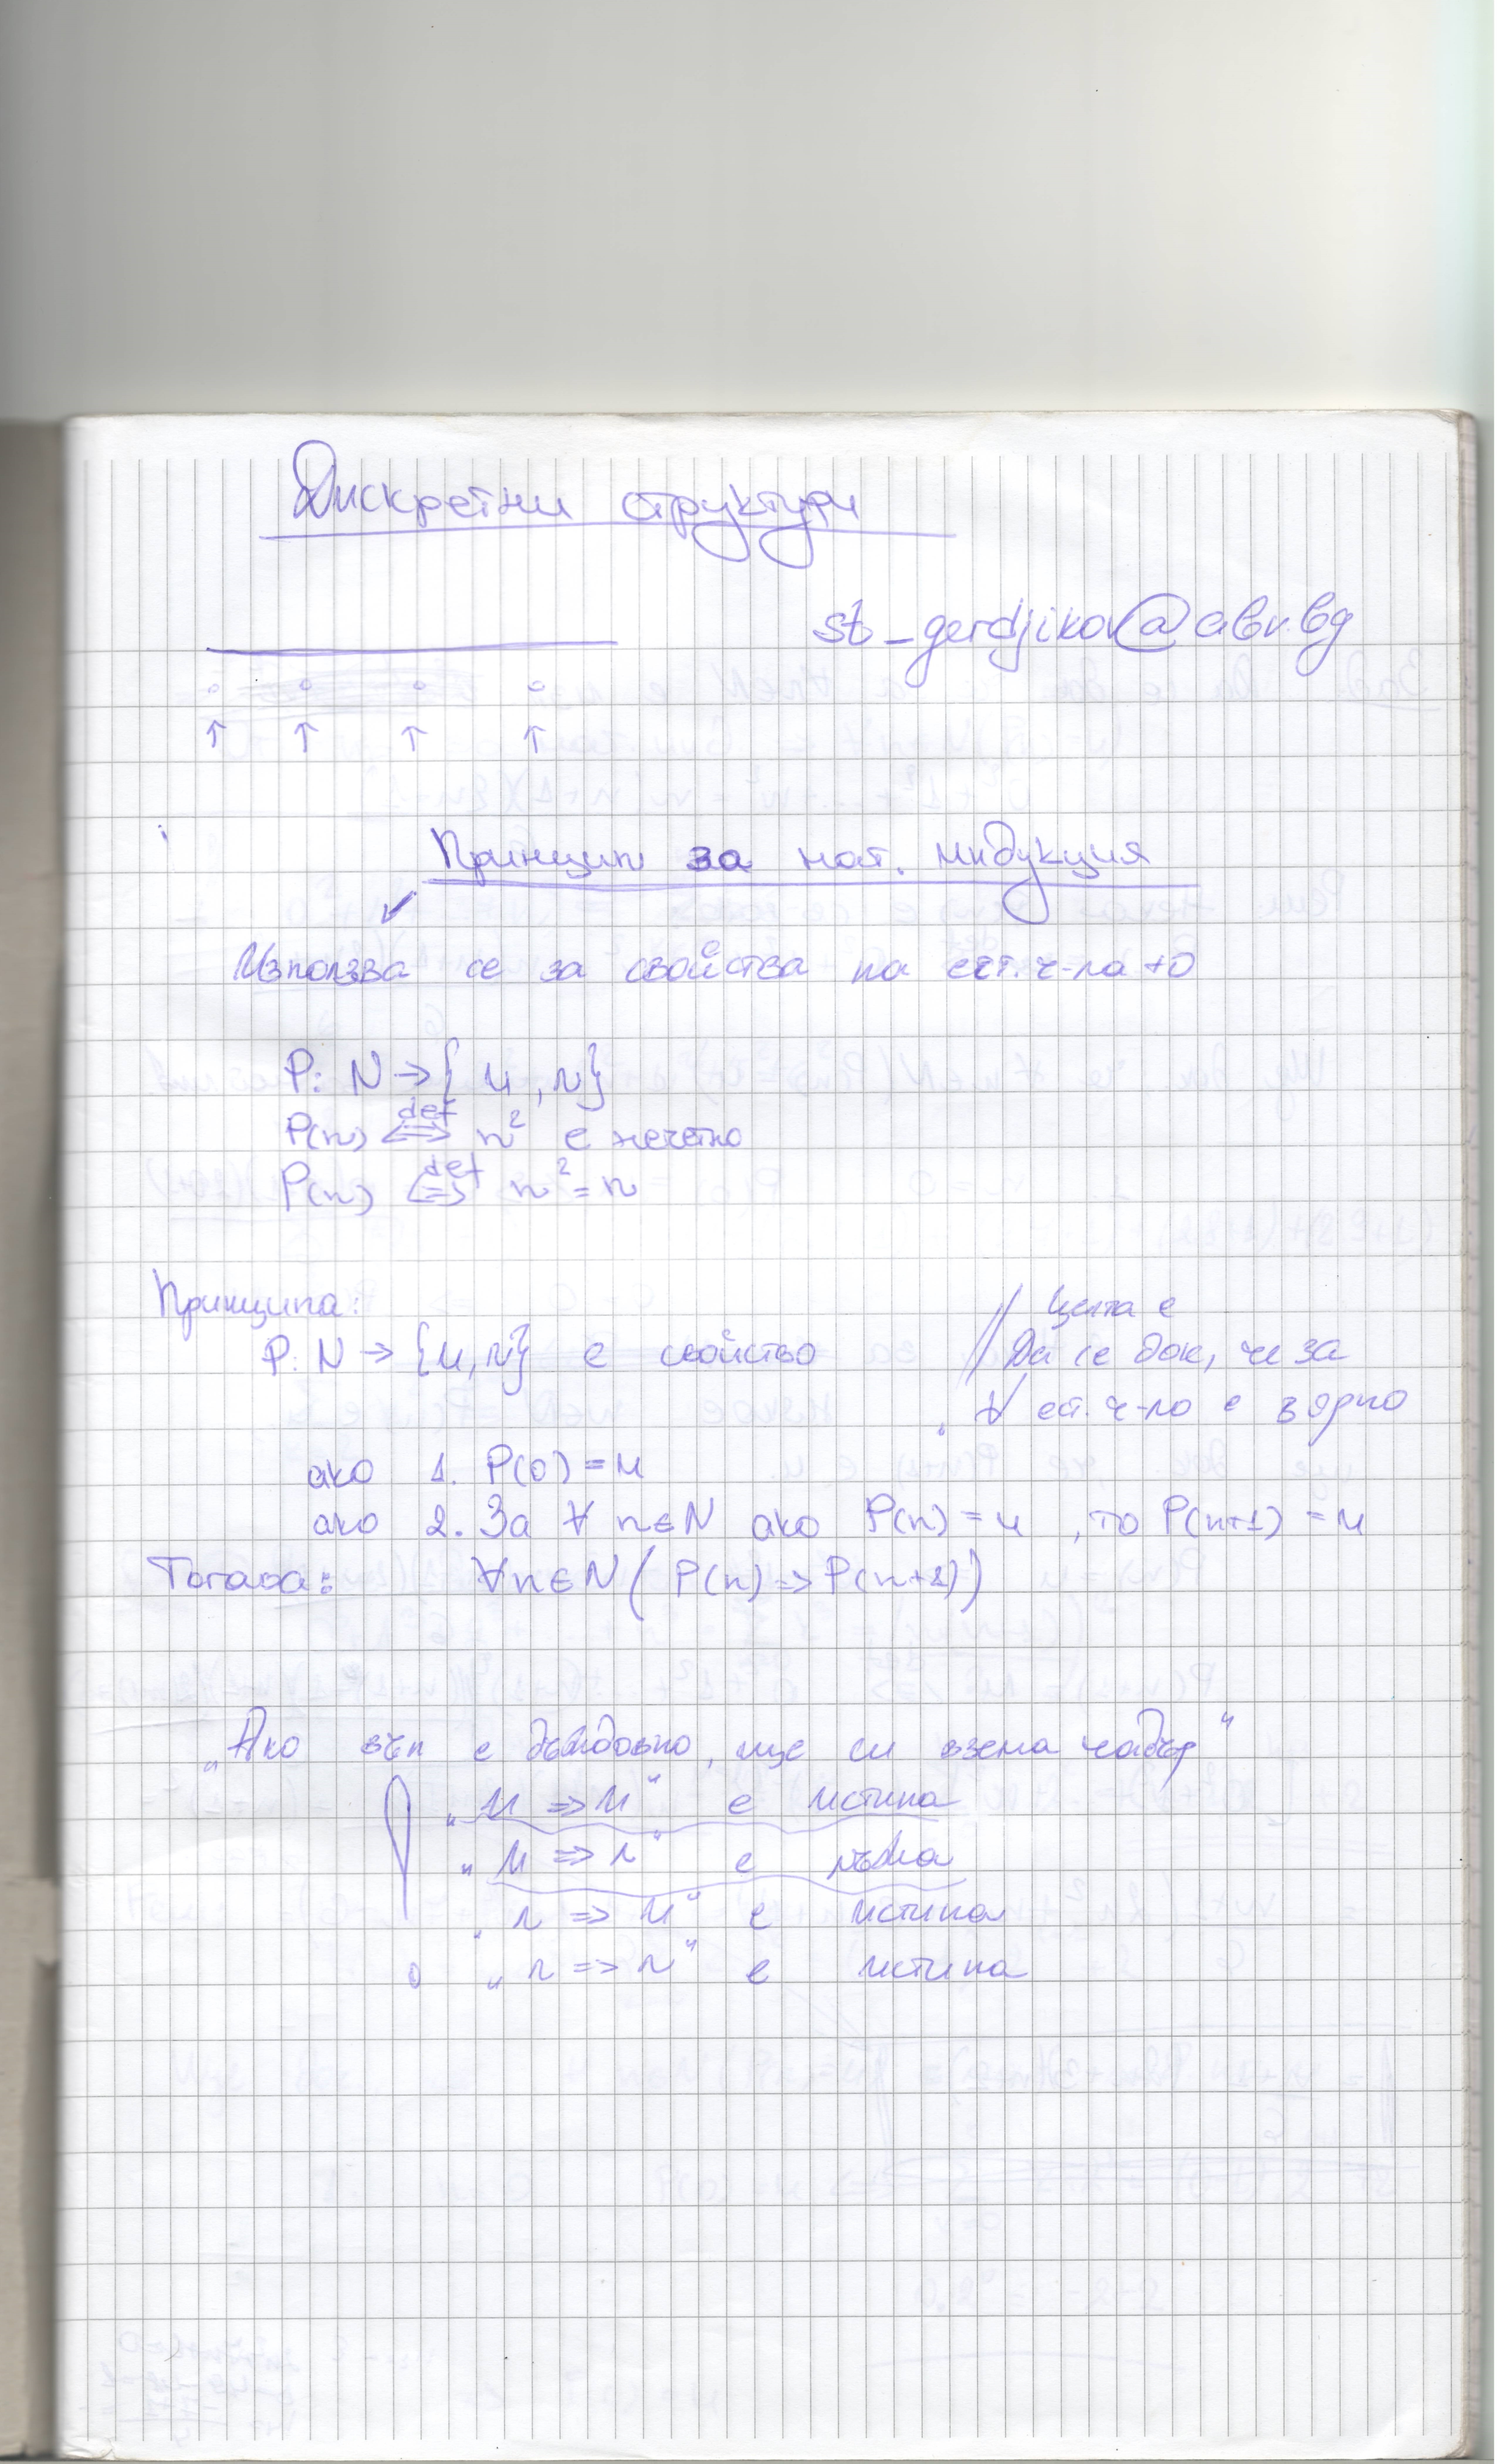 Дискретни структури
st_gerdjikov@abv.bg
Принцип за мат. индукция
Използва се за свойства на ест. ч-ла +0
P: N → {и, л}
P(n) ⇔def n² е нечетно
P(n) ⇔def n² = n
Принципа:
// Целта е
P: N → {и, л} е свойство
Да се док, че за
∀ ест. ч-ло е вярно
ако 1. P(0) = и
ако 2. За ∀ n∈N ако P(n) = и, то P(n+1) = и
Тогава: ∀n∈N (P(n) ⇒ P(n+1))
„Ако вън е дъждовно, ще си взема чадър“
„и ⇒ и“ е истина
„и ⇒ л“ е лъжа
„л ⇒ и“ е истина
„л ⇒ л“ е истина